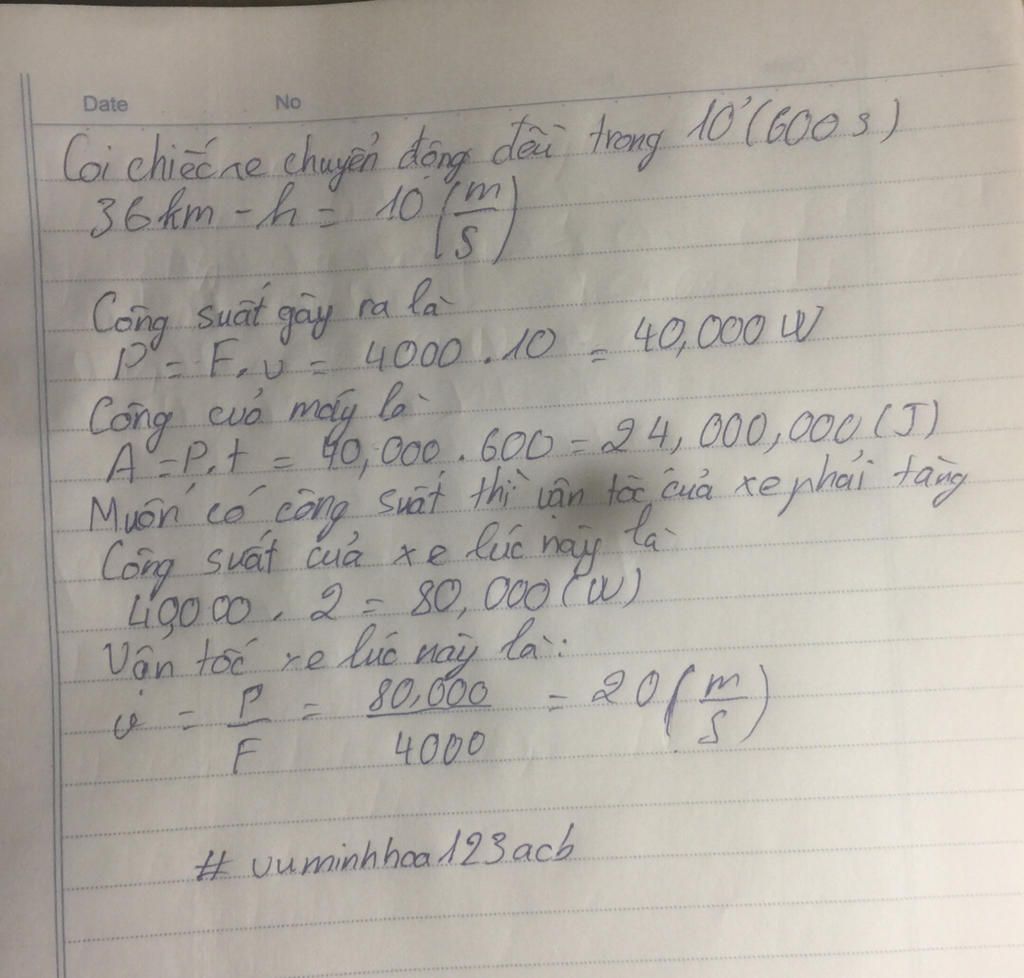 Date No
Coi chiếc xe chuyển động đều trong 10'(600s)
36km-h = 10 (m/s)
Công suất gây ra là
P = F.v = 4000.10 = 40,000W
Công cuả máy là
A = P.t = 40,000.600 = 24,000,000(J)
Muốn có công suất thì vận tốc của xe phải tăng
Công suất của xe lúc này là
40,000.2 = 80,000(W)
Vận tốc xe lúc này là:
v = P/F = 80,000/4000 = 20 (m/s)
# vuminhhoa123acb